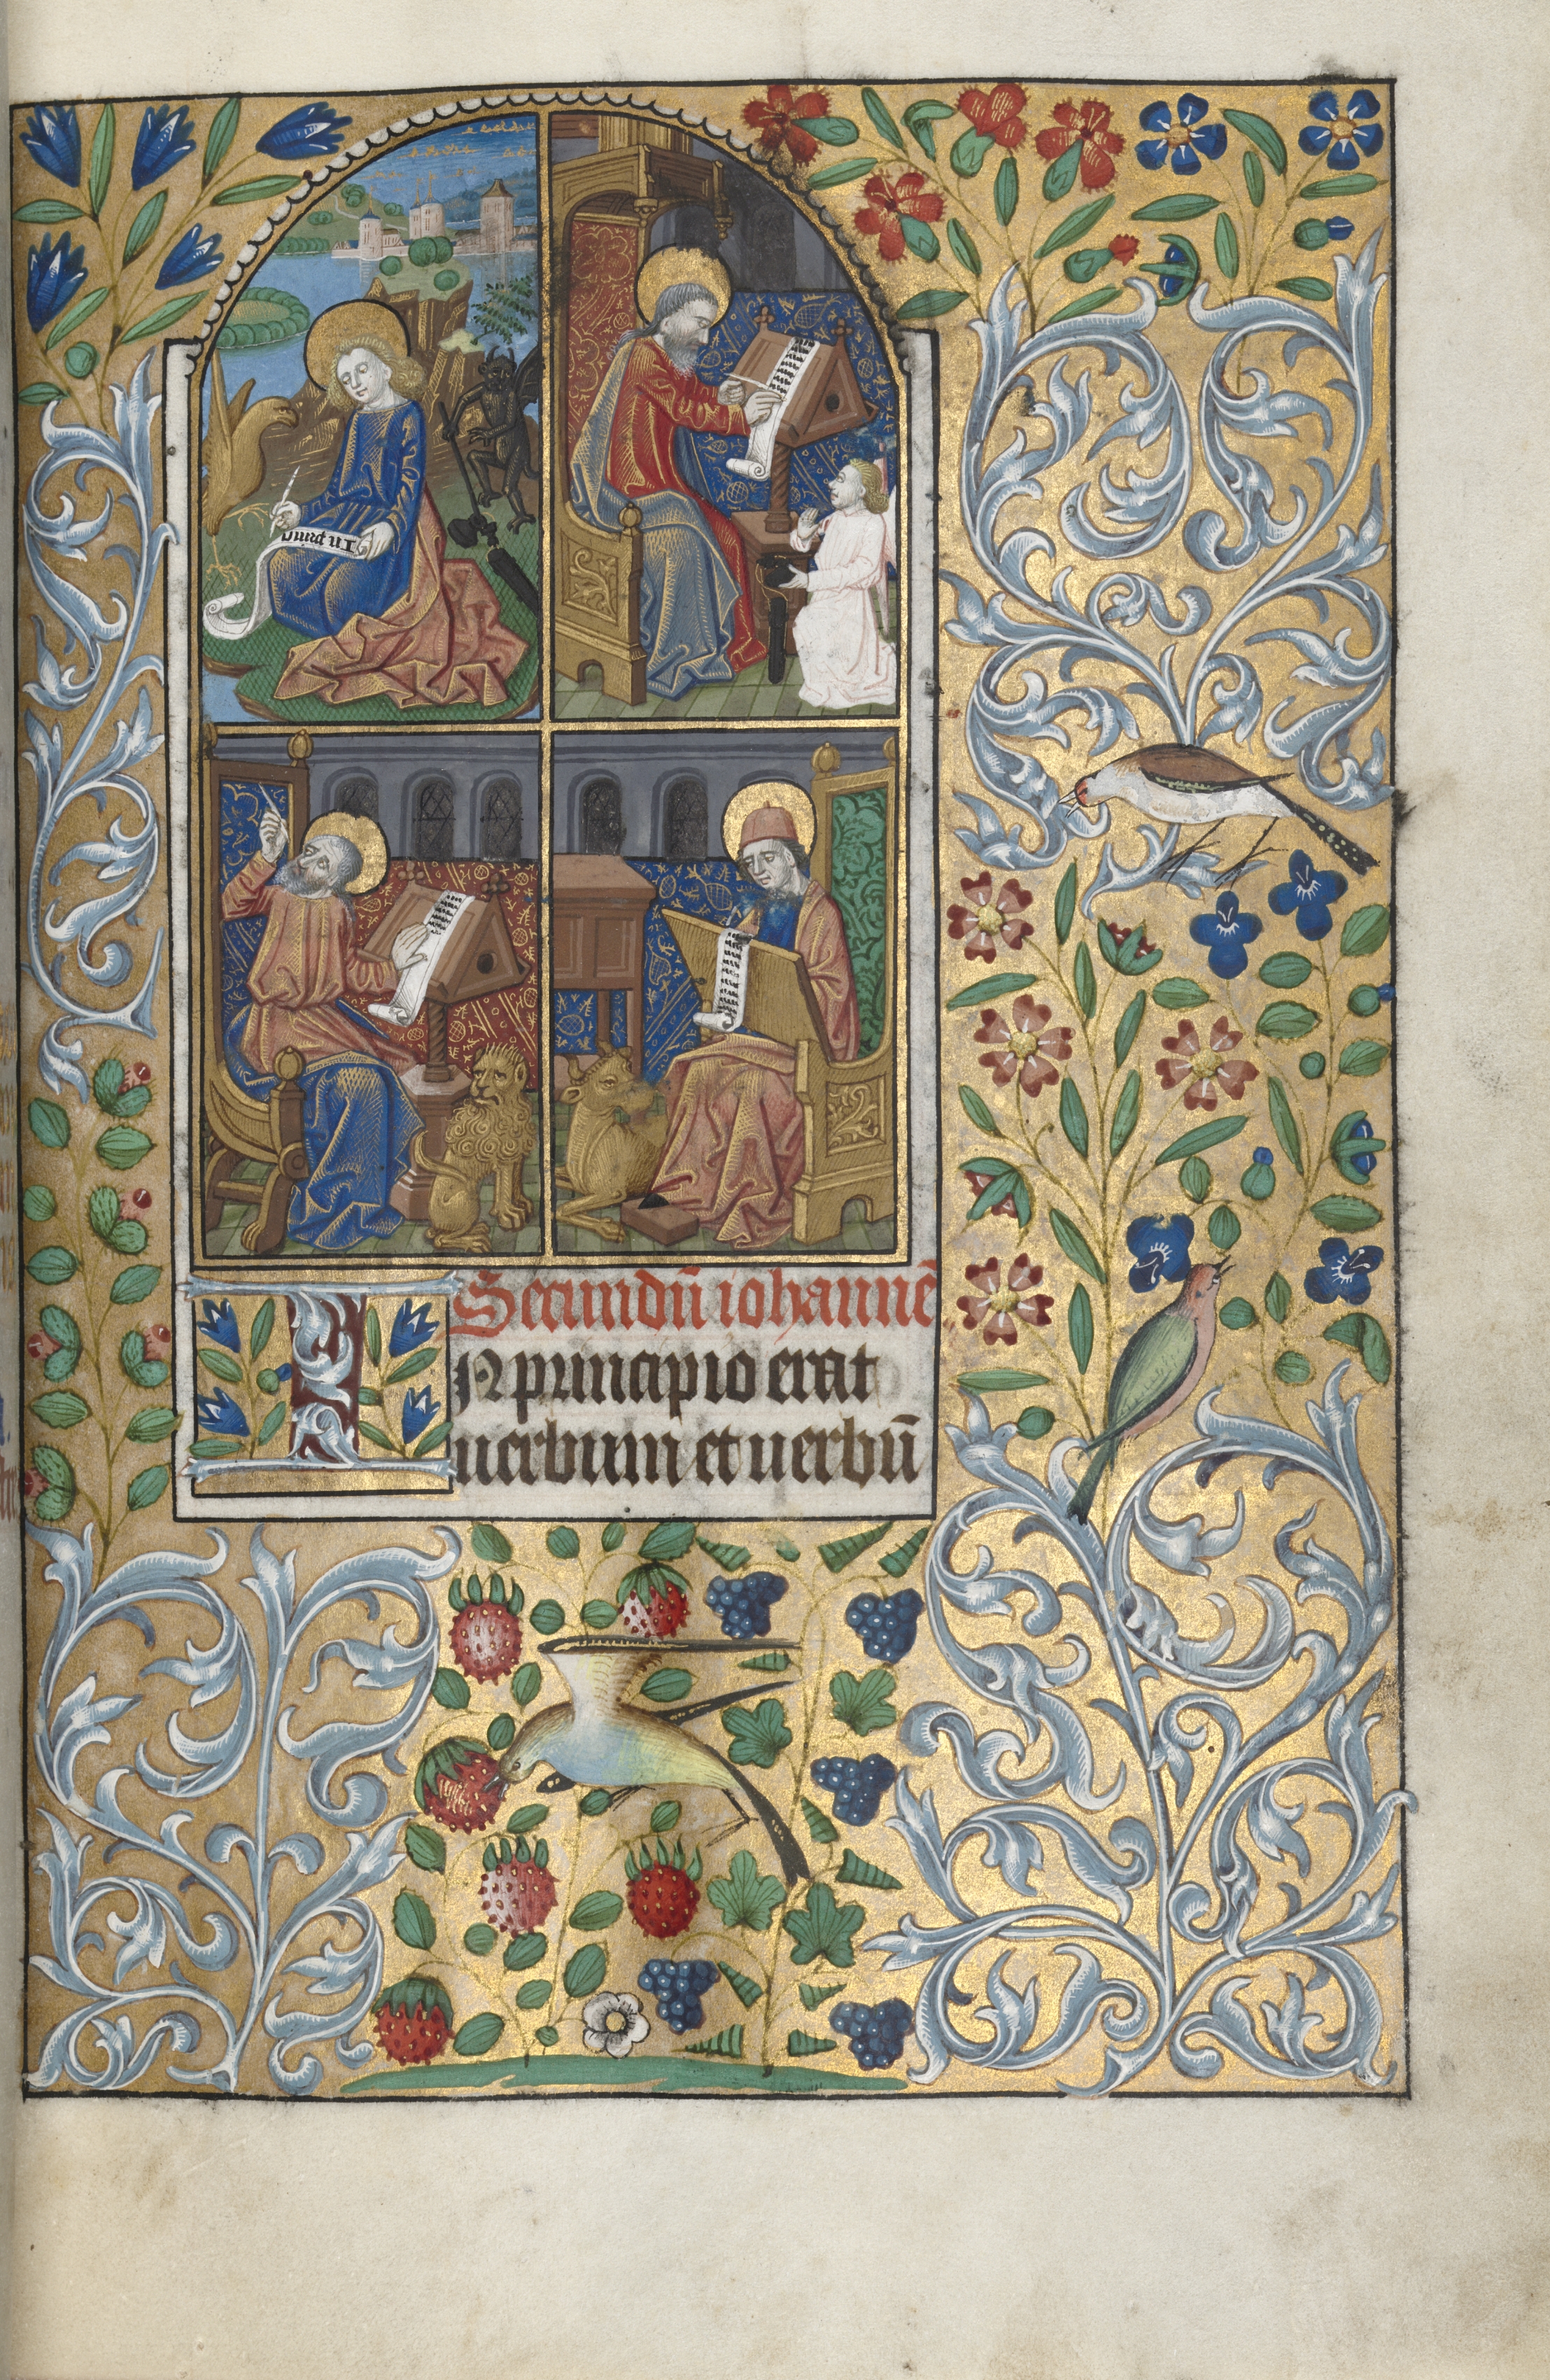 Secundū iohannē
IN principio erat
uerbum et uerbū